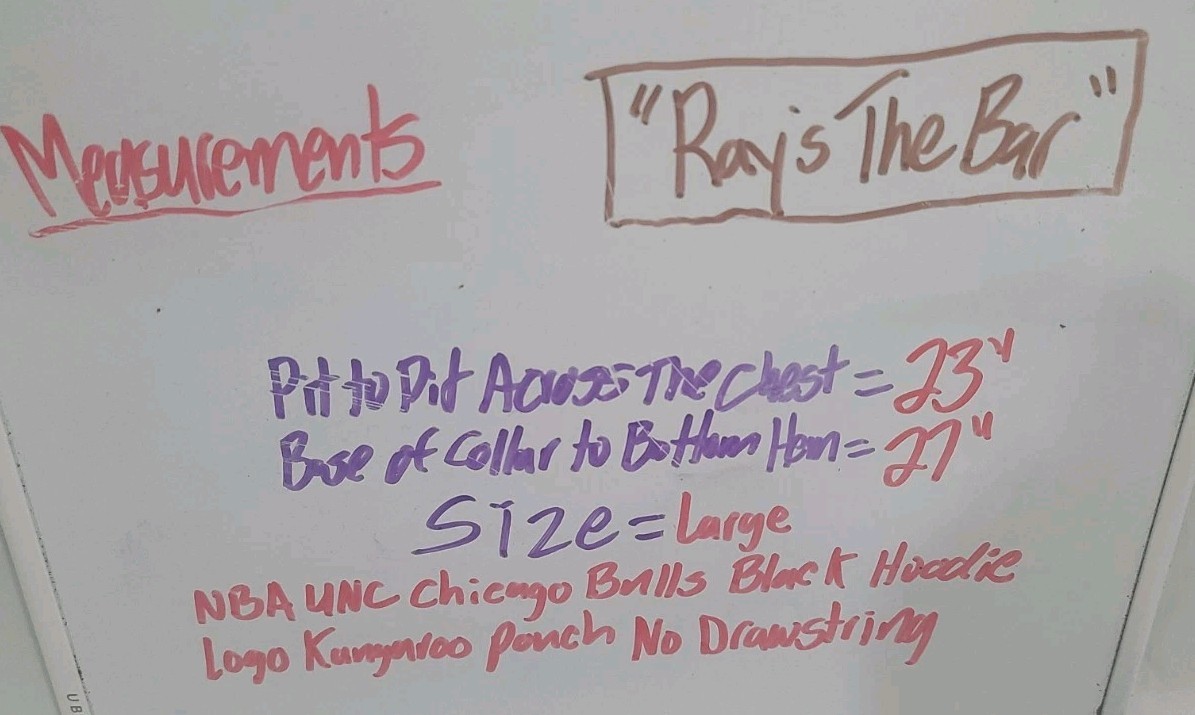 Measurements
"Ray's The Bar"
Pit to Pit Across The Chest = 23"
Base of Collar to Bottom Hem = 27"
Size = Large
NBA UNC Chicago Bulls Black Hoodie
Logo Kangaroo Pouch No Drawstring
UB